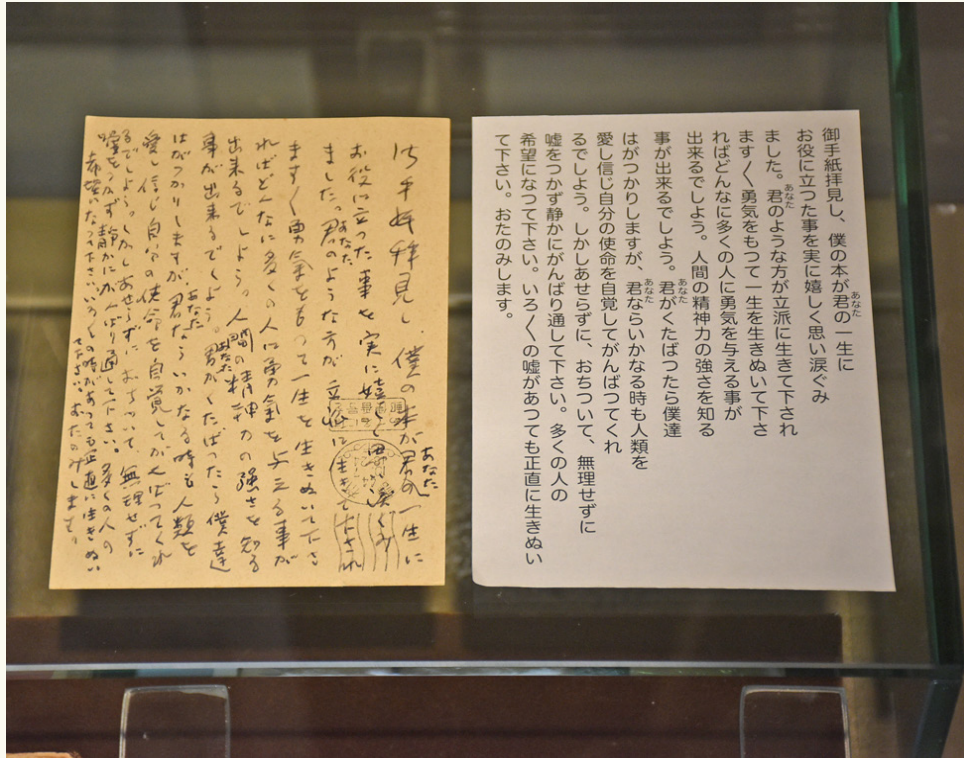 御手紙拝見し、僕の本が君の一生に
あなた
お役に立つた事を実に嬉しく思い涙ぐみ
ました。君のような方が立派に生きて下され
あなた
ます〱勇気をもつて一生を生きぬいて下さ
ればどんなに多くの人に勇気を与える事が
出来るでしよう。人間の精神力の強さを知る
事が出来るでしよう。君がくたばつたら僕達
あなた
はがつかりしますが、君ならいかなる時も人類を
あなた
愛し信じ自分の使命を自覚してがんばつてくれ
るでしよう。しかしあせらずに、おちついて、無理せずに
嘘をつかず静かにがんばり通して下さい。多くの人の
希望になつて下さい。いろ〱の嘘があつても正直に生きぬい
て下さい。おたのみします。
御手紙拝見し、僕の本が君の一生に
あなた
お役に立つた事を実に嬉しく思い涙ぐみ
ました。君のような方が立派に生きて下され
あなた
ます〱勇氣をもつて一生を生きぬいて下さ
ればどんなに多くの人に勇氣を与える事が
出来るでしよう。人間の精神力の強さを知る
事が出来るでしよう。君がくたばつたら僕達
あなた
はがつかりしますが、君ならいかなる時も人類を
あなた
愛し信じ自分の使命を自覚してがんばつてくれ
るでしよう。しかしあせらずに、おちついて、無理せずに
嘘をつかず静かにがんばり通して下さい。多くの人の
希望になつて下さい。いろ〱の嘘があつても正直に生きぬい
て下さい。おたのみします。